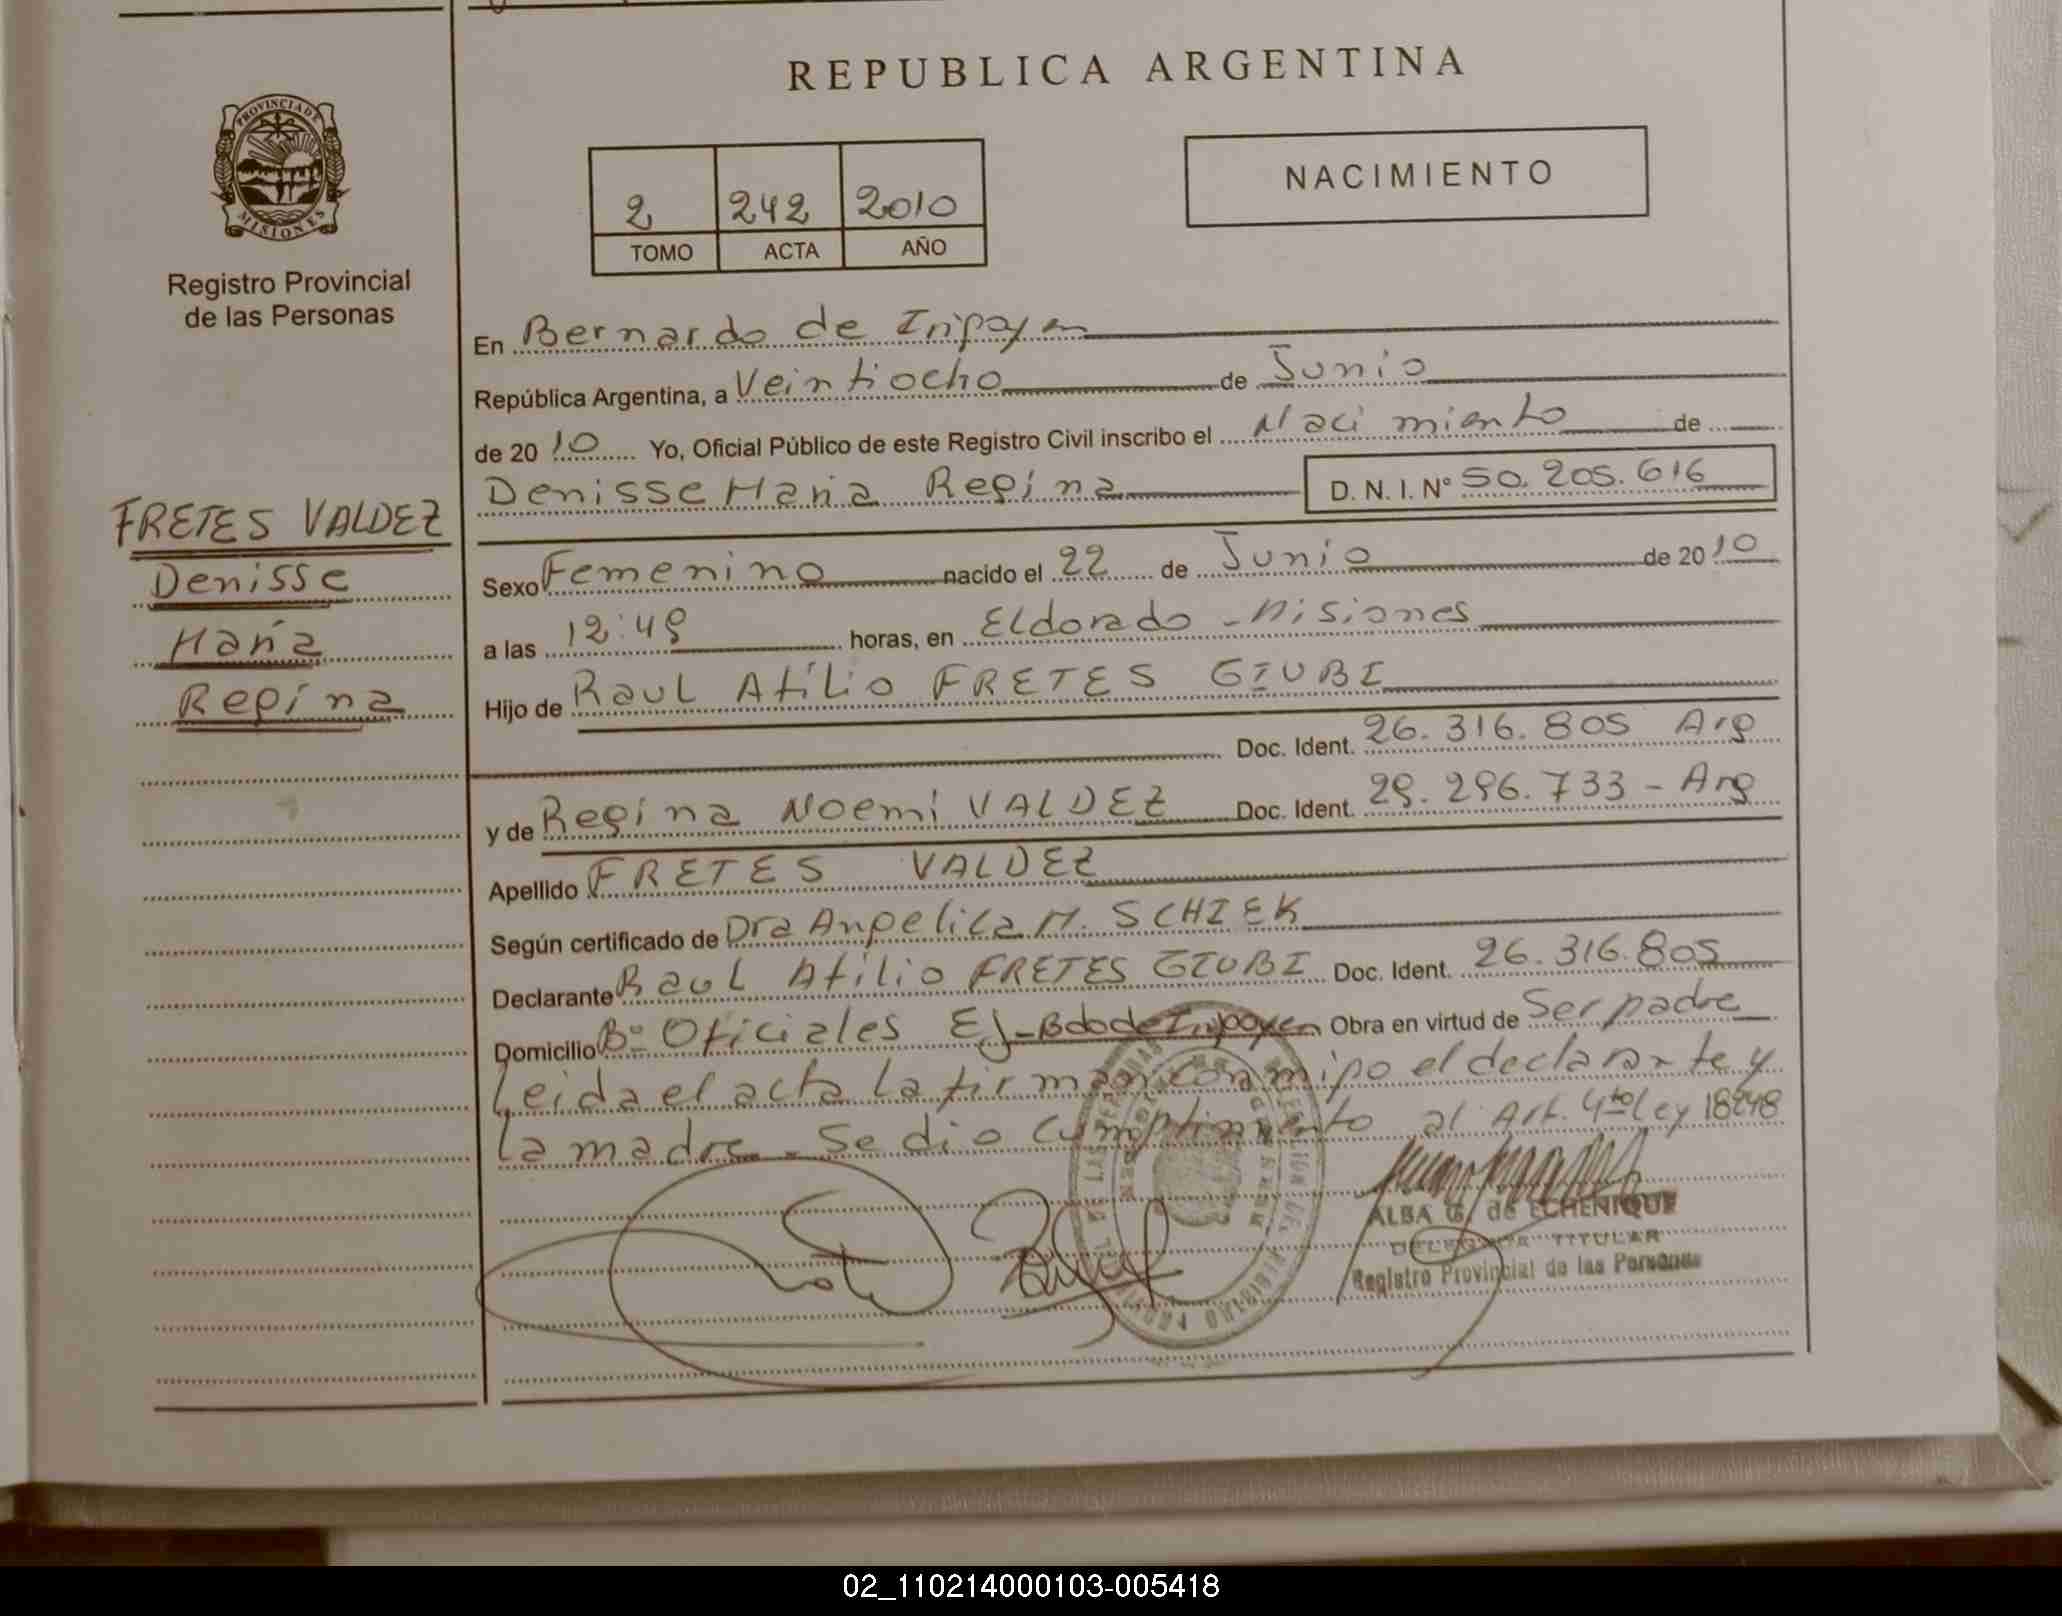 REPUBLICA ARGENTINA
PROVINCIA DE
MISIONES
Registro Provincial
de las Personas
2 242 2010
TOMO ACTA AÑO
NACIMIENTO
En Bernardo de Irigoyen
República Argentina, a Veintiocho de Junio
de 2010 Yo, Oficial Público de este Registro Civil inscribo el Nacimiento de
Denisse Maria Regina D. N. I. N° 50.205.616
FRETES VALDEZ
Denisse
Maria
Regina
Sexo Femenino nacido el 22 de Junio de 2010
a las 12:49 horas, en Eldorado - Misiones
Hijo de Raul Atilio FRETES GIUBI
Doc. Ident. 26.316.805 Arg
y de Regina Noemi VALDEZ Doc. Ident. 29.296.733 - Arg
Apellido FRETES VALDEZ
Según certificado de Dra Angelica M. SCHIEK
Declarante Raul Atilio FRETES GIUBI Doc. Ident. 26.316.805
Domicilio B° Oficiales EJ-Bdo de Irigoyen Obra en virtud de Ser padre
Leida el acta la firman conmigo el declarante y
la madre. Se dio cumplimiento al Art. 4to Ley 18248
ALBA G. de ECHENIQUE
DELEGADA TITULAR
Registro Provincial de las Personas
02_110214000103-005418